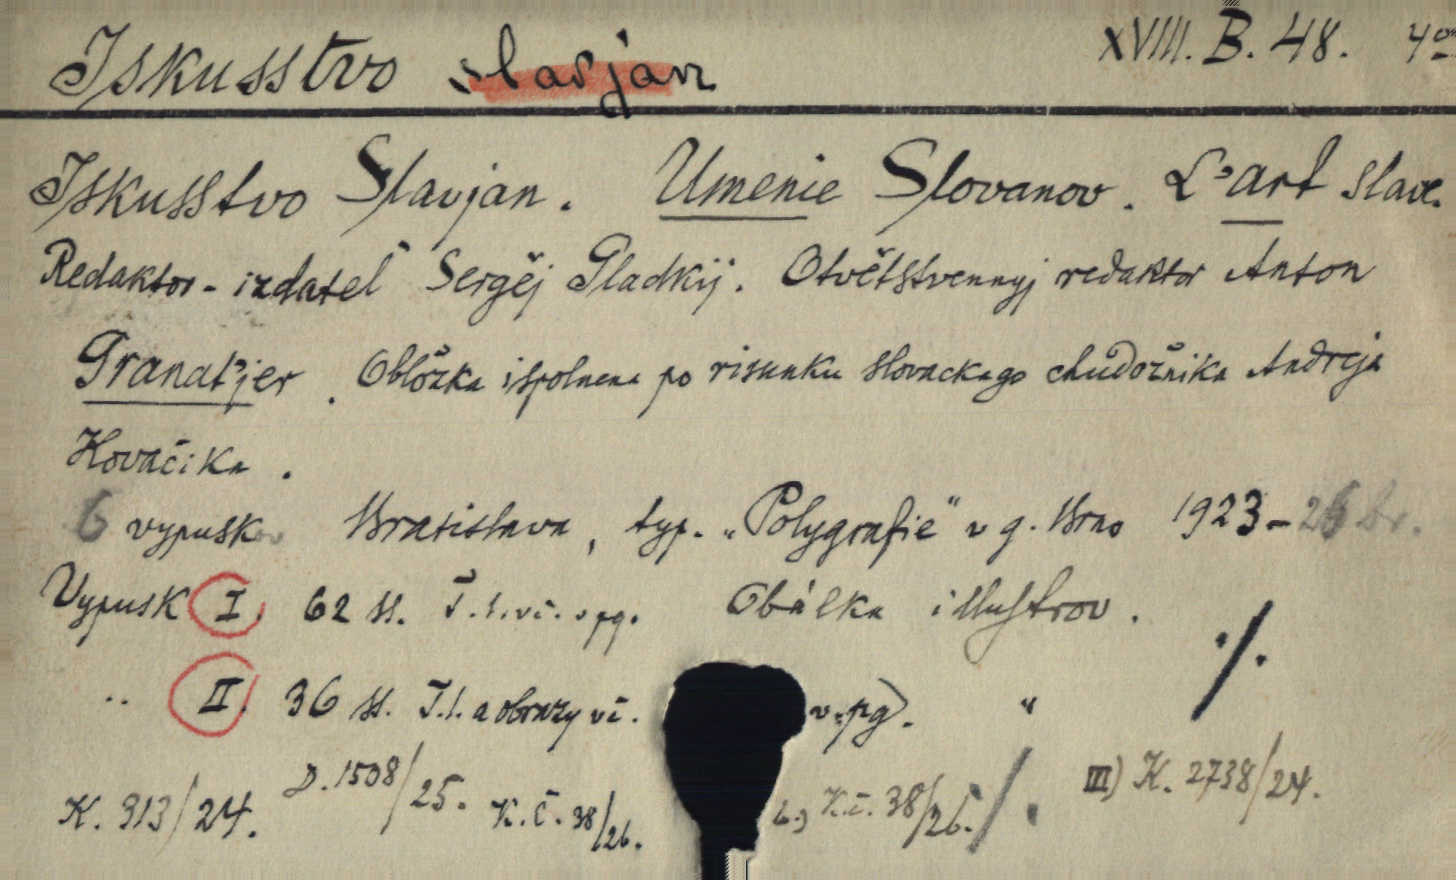 Iskusstvo slavjan XVIII. B. 48. 4º
Iskusstvo Slavjan. Umenie Slovanov. L'art slave.
Redaktor-izdatel' Sergěj Gladkij. Otvětstvennyj redaktor Anton
Granatijer. Obložka ispolnena po risunku slovackago chudožnika Andreja
Kovačika.
6 vypuskov Bratislava, typ. „Polygrafie" v g. Brno 1923-26 br.
Vypusk I. 62 ss. T.l. vč. v pg. Obálka illustrov. ./.
" II. 36 ss. T.l. a obrazy vč. v pg). "
K. 913/24. D. 1508/25. K.č. 38/26. K.č. 38/26. ./. III) K. 2738/24.